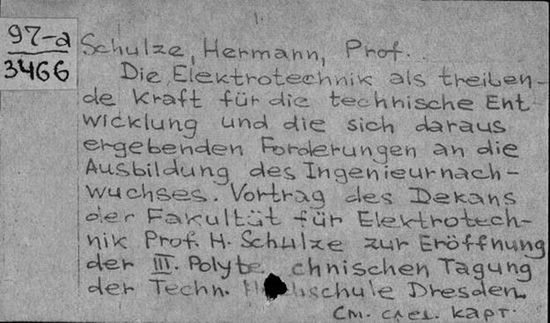 97-а
3466
Schulze, Hermann, Prof.
Die Elektrotechnik als treiben-
de Kraft für die technische Ent
wicklung und die sich daraus
ergebenden Forderungen an die
Ausbildung des Ingenieurnach-
wuchses. Vortrag des Dekans
der Fakultät für Elektrotech-
nik Prof. H. Schulze zur Eröffnung
der III. Polyte chnischen Tagung
der Techn. Hochschule Dresden
См. след. карт.